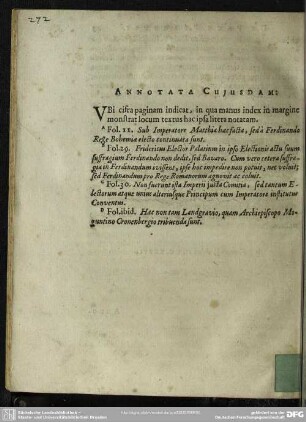 272
ANNOTATA CUJUSDAM:
VBi cifra paginam indicat, in qua manus index in margine
monstrat locum textus hac ipsa litera notatam.
A Fol. 11. Sub Imperatore Matthia hac facta, sed à Ferdinando
Rege Bohemia electo continuata sunt.
Fol. 29. Fridericus Elector Palatinus in ipso Electionis actu suum
suffragium Ferdinando non dedit, sed Bavaro. Cum vero cetera suffra-
gia in Ferdinandum coissent, ipse hoc improbare non potuit, nec voluit;
sed Ferdinandum pro Rege Romanorum agnovit ac coluit.
Fol. 30. Non fuerunt ista Imperii justa Comitia, sed tantum E-
lectorum atque unius alteriusque Principum cum Imperatore institutus
Conventus.
D Fol. ibid. Hac non tam Landgravio, quam Archiepiscopo Mo-
guntino Cronenbergio tribuenda sunt.